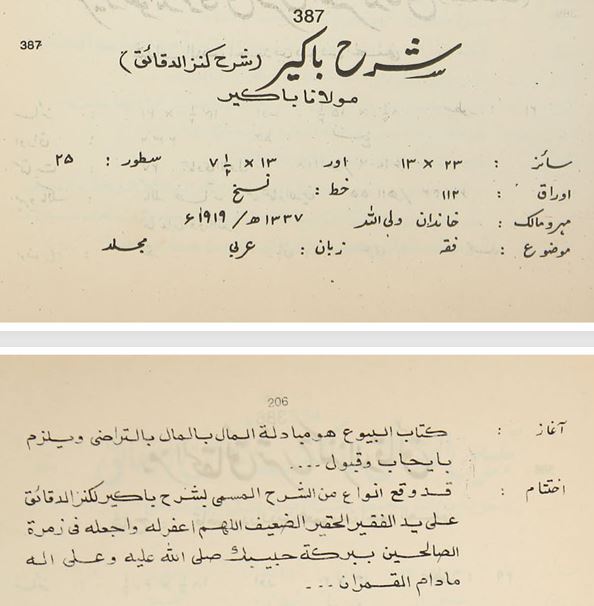 387
387
شرح باكير (شرح كنز الدقائق)
مولانا باكير
سائز : ۲۳ × ۱۳ اور ۱۳ × ۷ ۱/۲ سطور : ۲۵
اوراق : ۱۱۲ خط : نسخ
مہر و مالک : خاندان ولی اللہ ۱۳۳۷ھ/ ۱۹۱۹ء
موضوع : فقہ زبان : عربی مجلد
206
آغاز : كتاب البيوع هو مبادلة المال بالمال بالتراضى ويلزم
بايجاب وقبول ....
اختتام : قد وقع انواع من الشرح المسمى بشرح باكير لكنز الدقائق
على يد الفقير الحقير الضعيف اللهم اغفر له واجعله فى زمرة
الصالحين ببركة حبيبك صلى الله عليه وعلى اله
مادام القمران ...